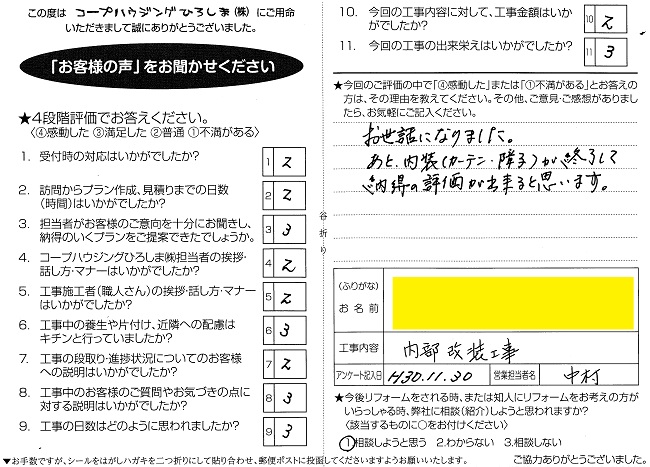 この度は コープハウジングひろしま(株) にご用命
いただきまして誠にありがとうございました。
「お客様の声」をお聞かせください
★4段階評価でお答えください。
〈④感動した ③満足した ②普通 ①不満がある〉
1. 受付時の対応はいかがでしたか? 1 2
2. 訪問からプラン作成、見積りまでの日数
(時間)はいかがでしたか? 2 2
3. 担当者がお客様のご意向を十分にお聞きし、
納得のいくプランをご提案できたでしょうか。 3 3
4. コープハウジングひろしま㈱担当者の挨拶・
話し方・マナーはいかがでしたか? 4 2
5. 工事施工者(職人さん)の挨拶・話し方・マナー
はいかがでしたか? 5 2
6. 工事中の養生や片付け、近隣への配慮は
キチンと行っていましたか? 6 3
7. 工事の段取り・進捗状況についてのお客様
への説明はいかがでしたか? 7 2
8. 工事中のお客様のご質問やお気づきの点に
対する説明はいかがでしたか? 8 3
9. 工事の日数はどのように思われましたか? 9 3
▼お手数ですが、シールをはがしハガキを二つ折りにして貼り合わせ、郵便ポストに投函してくださいますようお願いいたします。
谷折り
10. 今回の工事内容に対して、工事金額はいか
がでしたか? 10 2
11. 今回の工事の出来栄えはいかがでしたか? 11 3
★今回のご評価の中で「④感動した」または「①不満がある」とお答えの
方は、その理由を教えてください。その他、ご意見・ご感想がありまし
たら、お気軽にご記入ください。
お世話になりました。
あと、内装(カーテン・障子)が終了して
納得の評価が出来ると思います。
(ふりがな)
お名前
工事内容 内部改装工事
アンケート記入日 H30.11.30 営業担当者名 中村
★今後リフォームをされる時、または知人にリフォームをお考えの方が
いらっしゃる時、弊社に相談(紹介)しようと思われますか?
〈該当するものに○をお付けください〉
①相談しようと思う 2.わからない 3.相談しない
ご協力ありがとうございました。